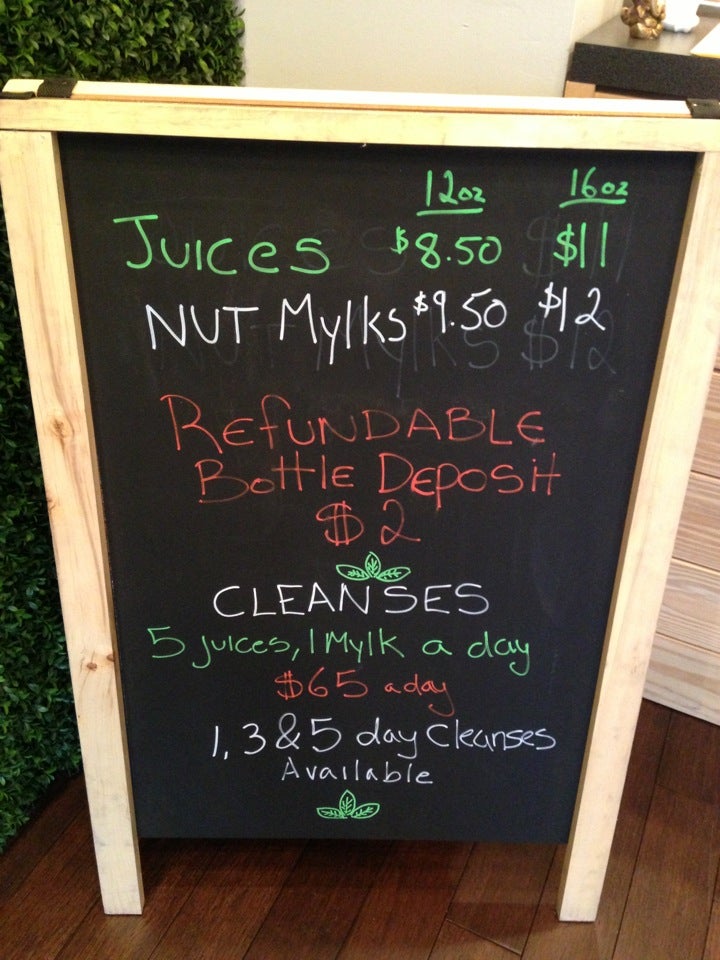 12oz 16oz
Juices $8.50 $11
NUT Mylks $9.50 $12
REFUNDABLE
Bottle Deposit
$2
CLEANSES
5 juices, 1 Mylk a day
$65 a day
1, 3 & 5 day Cleanses
Available